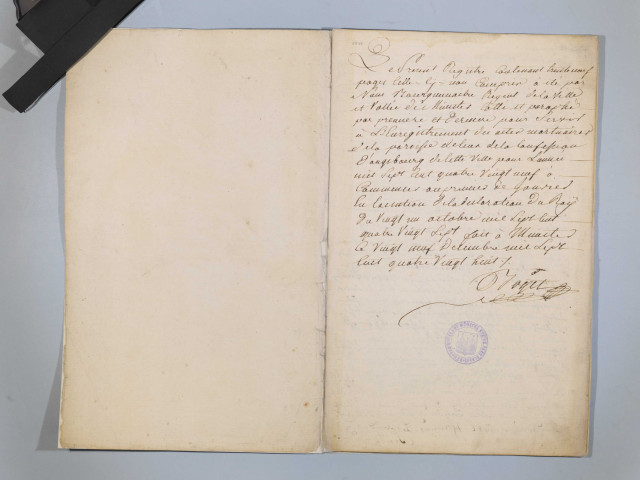 Le Present Registre Contenant
pages Celle-Cy non Comprise a été par
Nous Bourguemaitre Regent de la Ville
et Vallée de Munster Cotté et paraphé
par premiere et Derniere pour Servir
à L'Enregistrement des actes mortuaires
de la paroisse de Ceux de la Confession
D'augsbourg de cette Ville pour L'année
mil Sept Cent quatre Vingt neuf à
Commencer au premier de Janvier
En Execution de la declaration du Roy
Du Vingt un octobre mil Sept Cent
quatre Vingt Sept fait à Munster
Le Vingt neuf Decembre mil Sept
Cent quatre Vingt huit /.